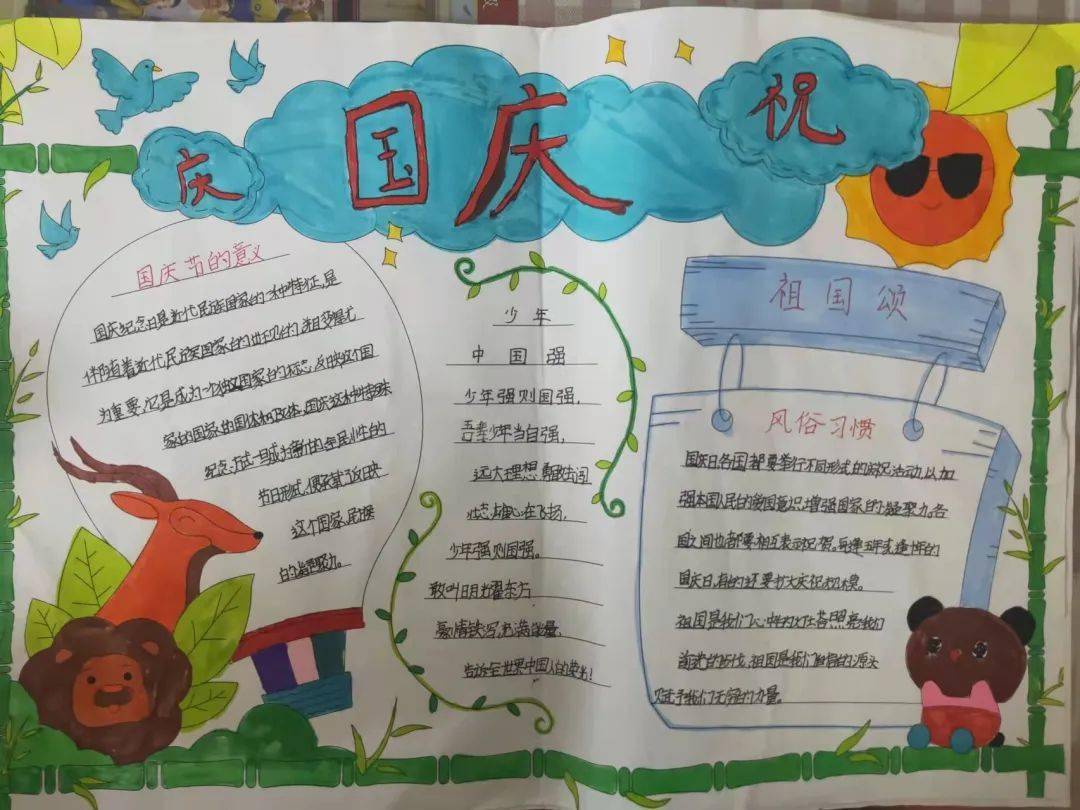 庆
国庆
祝
国庆节的意义
国庆纪念日是近代民族国家的一种特征,是
伴随着近代民族国家的出现的
为重要,它是成为一个独立国家的标志,反映这个国
家的国家的国体和政体,国庆这种特殊
纪念方式一旦成为新的全民性的
节日形式,便承载了反映
这个国家、民族
的凝聚力。
少年
中国强
少年强则国强,
吾辈少年当自强,
远大理想勇敢去闯
壮志雄心在飞扬,
少年强则国强。
敢叫日月耀东方,
豪情铁骨充满能量,
告诉全世界中国人的荣光!
祖国颂
风俗习惯
国庆日各国都要举行不同形式的庆祝活动,以加
强本国人民的爱国意识,增强国家的凝聚力。各
国之间也都要相互表示祝贺。每逢五年或逢十年的
国庆日,有的还要扩大庆祝规模。
祖国是我们心中的灯塔照亮我们
前进的步伐,祖国是我们的源头
赋予我们无穷的力量。